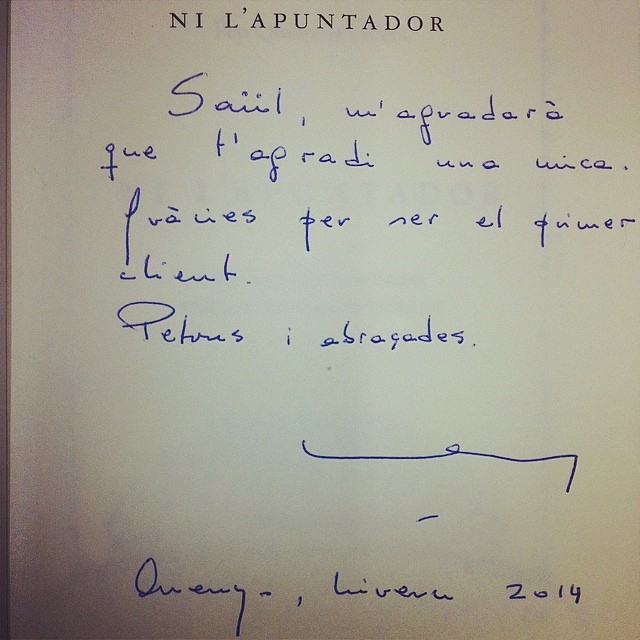 NI L'APUNTADOR
Saül, m'agradarà
que t'agradi una mica.
Gràcies per ser el primer
client.
Petons i abraçades.
, hivern 2014